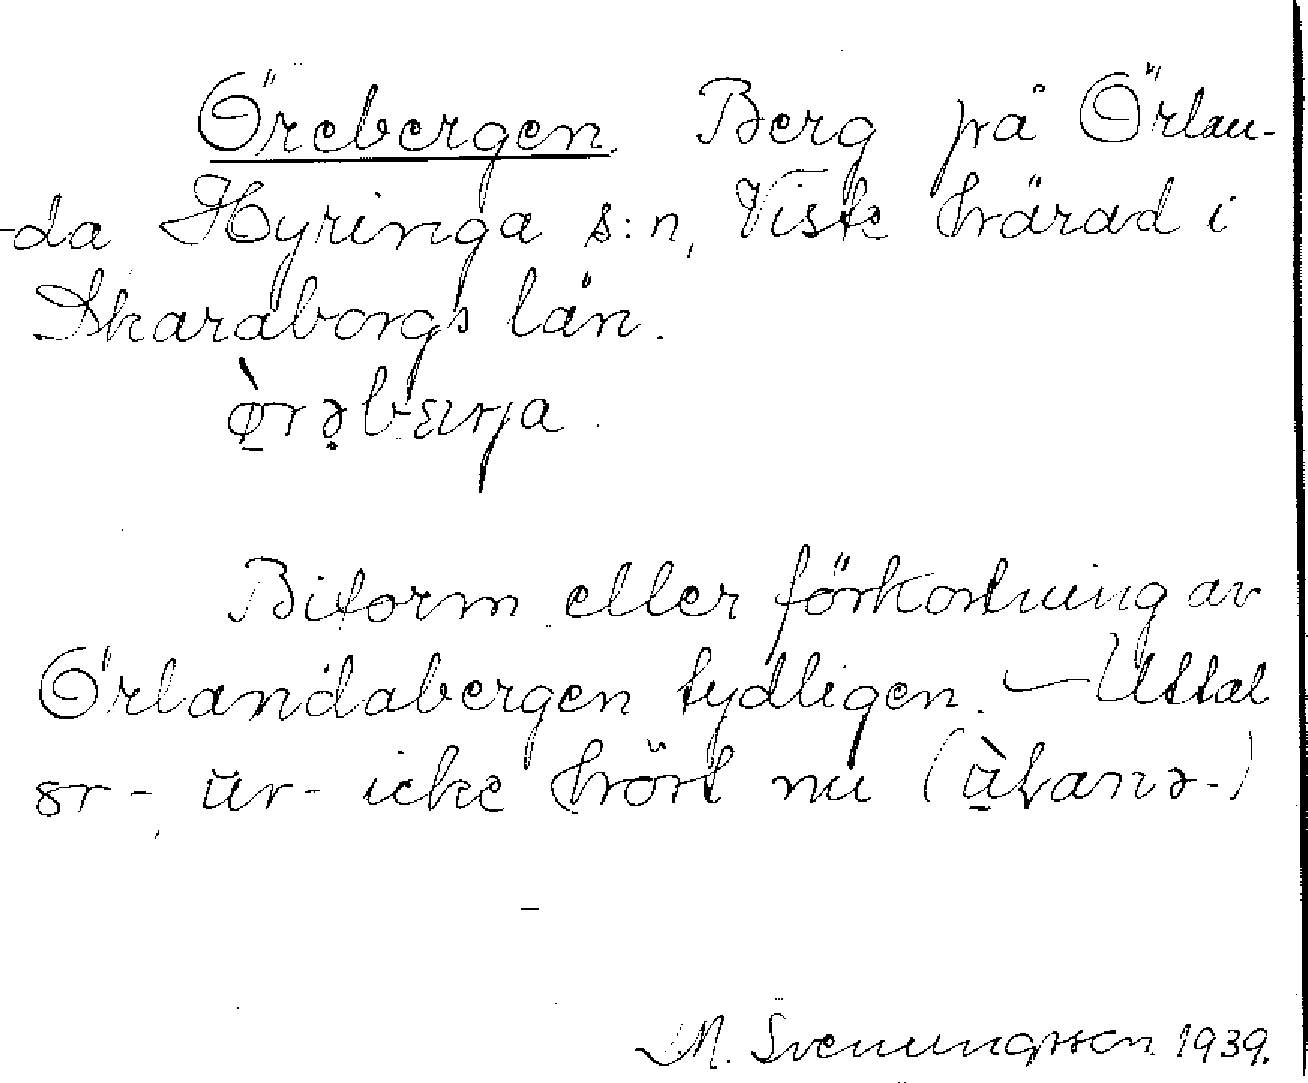 Örebergen. Berg på Örlan-
da Hyringa s:n, Viste härad i
Skaraborgs län.
Biform eller förkortning av
Örlandabergen tydligen. — Uttal
ər-, ur- icke hört nu
M. Svenungsson 1939.